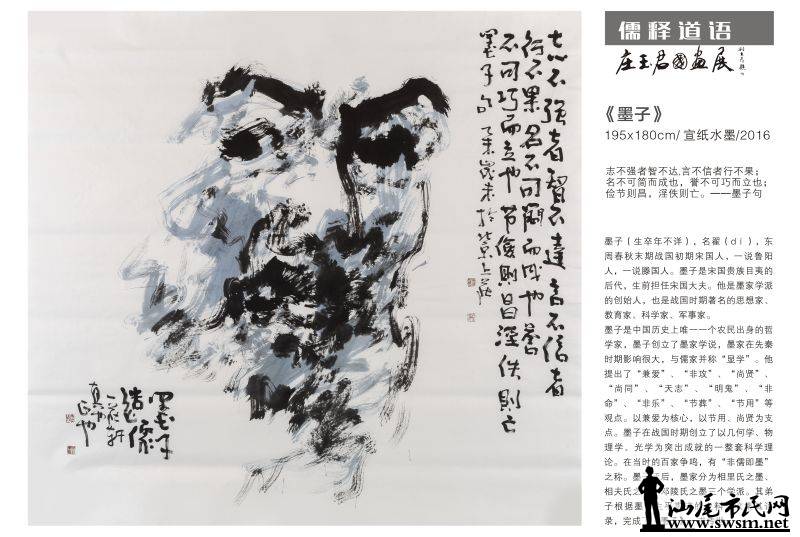 志不强者智不達言不信者
行不果名不可簡而成也譽
不可巧而立也节儉則昌淫佚則亡
墨子句 乙未歲末於北京上莊
墨子
造像
儒释道语
庄玉君國畫展
《墨子》
195x180cm/ 宣纸水墨/2016
志不强者智不达,言不信者行不果；
名不可简而成也，誉不可巧而立也；
俭节则昌，淫佚则亡。——墨子句
墨子（生卒年不详），名翟（dí），东
周春秋末期战国初期宋国人，一说鲁阳
人，一说滕国人。墨子是宋国贵族目夷的
后代，生前担任宋国大夫。他是墨家学派
的创始人，也是战国时期著名的思想家、
教育家、科学家、军事家。
墨子是中国历史上唯一一个农民出身的哲
学家，墨子创立了墨家学说，墨家在先秦
时期影响很大，与儒家并称“显学”。他
提出了“兼爱”、“非攻”、“尚贤”、
“尚同”、“天志”、“明鬼”、“非
命”、“非乐”、“节葬”、“节用”等
观点。以兼爱为核心，以节用、尚贤为支
点。墨子在战国时期创立了以几何学、物
理学、光学为突出成就的一整套科学理
论。在当时的百家争鸣，有“非儒即墨”
之称。墨子死后，墨家分为相里氏之墨、
相夫氏之 邓陵氏之墨三个学派。其弟
子根据墨
录，完成
汕尾市民网
www.swsm.net